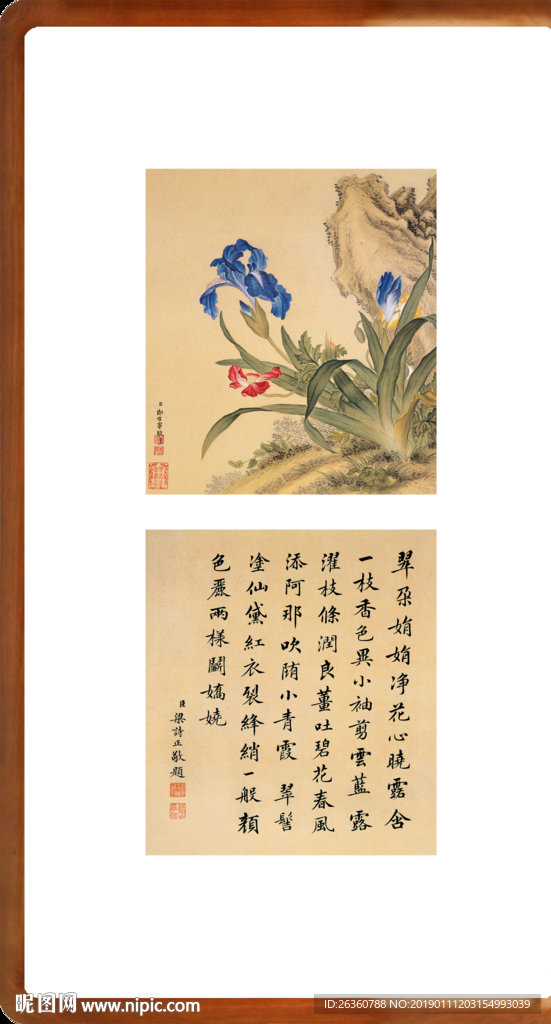 臣郎世寧敬畫
翠朶娟娟淨花心曉露含
一枝香色異小袖剪雲藍露
濯枝條潤良薑吐碧花春風
添阿那吹隨小青霞翠髻
塗仙黛紅衣裂絳綃一般顏
色嚴兩樣鬬嬌嬈
臣梁詩正敬題
昵图网 www.nipic.com
ID:26360788 NO:20190111203154993039